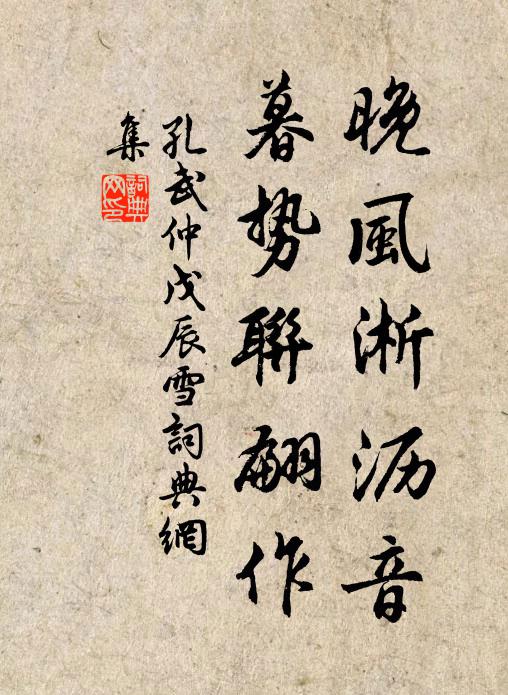 晚風淅沥音
暮势聯翩作
孔武仲戊辰雪詞典網
集
詞典網印